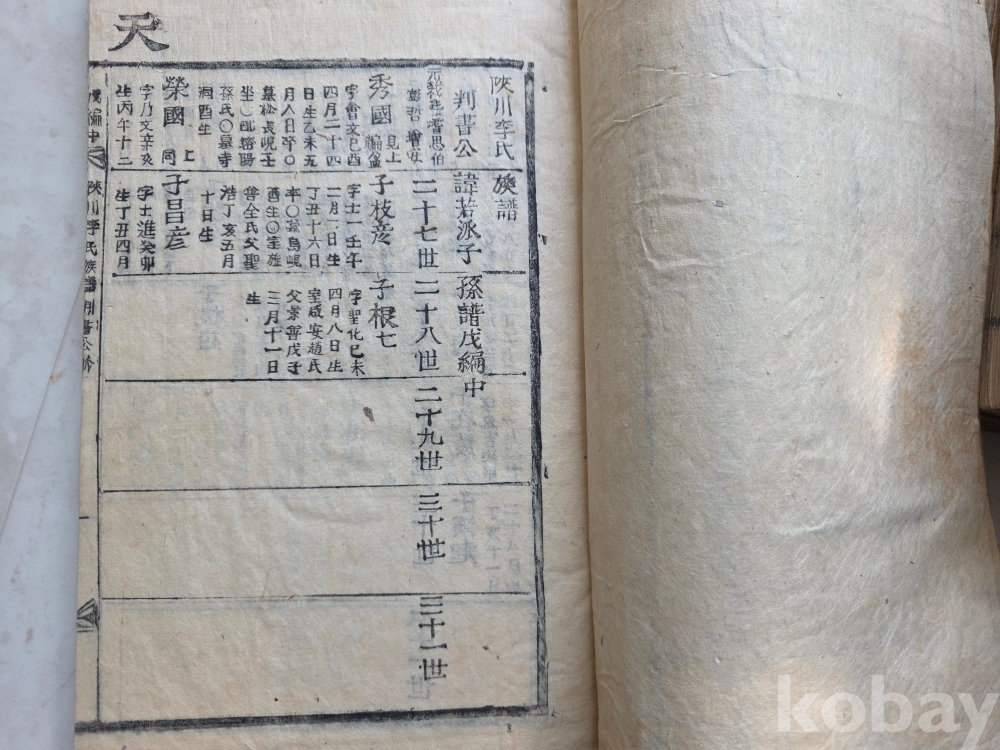 天
陜川李氏族譜
判書公諱若派子孫譜戊編中
二十七世
二十八世
二十九世
三十世
三十一世
秀國
見上
編盆
字會文己酉
四月二十四
日生乙未五
月八日卒〇
墓松長峴壬
坐〇配密陽
孫氏〇墓寺
洞酉生
子枝彦
字士一壬午
二月二日生
丁丑十六日
卒〇墓烏峴
酉生〇室旌
善全氏父聖
浩丁亥五月
十日生
子根七
字聖化己未
四月八日生
室咸安趙氏
父景善戊子
三月十一日
生
榮國
上同
字乃文辛亥
生丙午十二
子昌彦
字士進癸卯
生丁丑四月
陜川李氏族譜判書公派
kobay